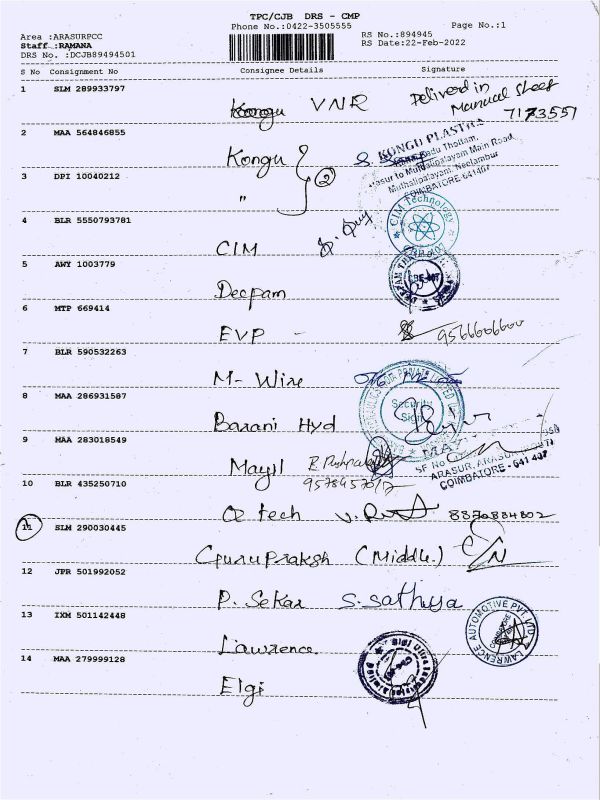 TPC/CJB DRS - CMP
Phone No.:0422-3505555
Page No.:1
Area :ARASURPCC
Staff :RAMANA
DRS No. :DCJB89494501
RS No.:894945
RS Date:22-Feb-2022
S No Consignment No Consignee Details Signature
1 SLM 289933797
VNR Delivered in
Manual Sheet
7173551
2 MAA 564846855
Kongu
KONGU PLASTRA
Thottam,
Arasur to Muthalipalayam Main Road,
Muthalipalayam, Neelambur
COIMBATORE 641407
3 DPI 10040212
" 2
4 BLR 5550793781
CIM
CIM Technology
5 AWY 1003779
Deepam
6 MTP 669414
EVP - 9566606600
7 BLR 590532263
M- Wire
8 MAA 286931587
Barani Hyd
Security
9 MAA 283018549
Mayil
SF No
ARASUR,
COIMBATORE - 641 407
10 BLR 435250710
tech 8870884802
11 SLM 290030445
Gurupraksh (Middle.)
12 JPR 501992052
P. Sekar S. Sathya
13 IXM 501142448
Lawrence
LAWRENCE AUTOMOTIVE PVT. LTD.
14 MAA 279999128
Elgi